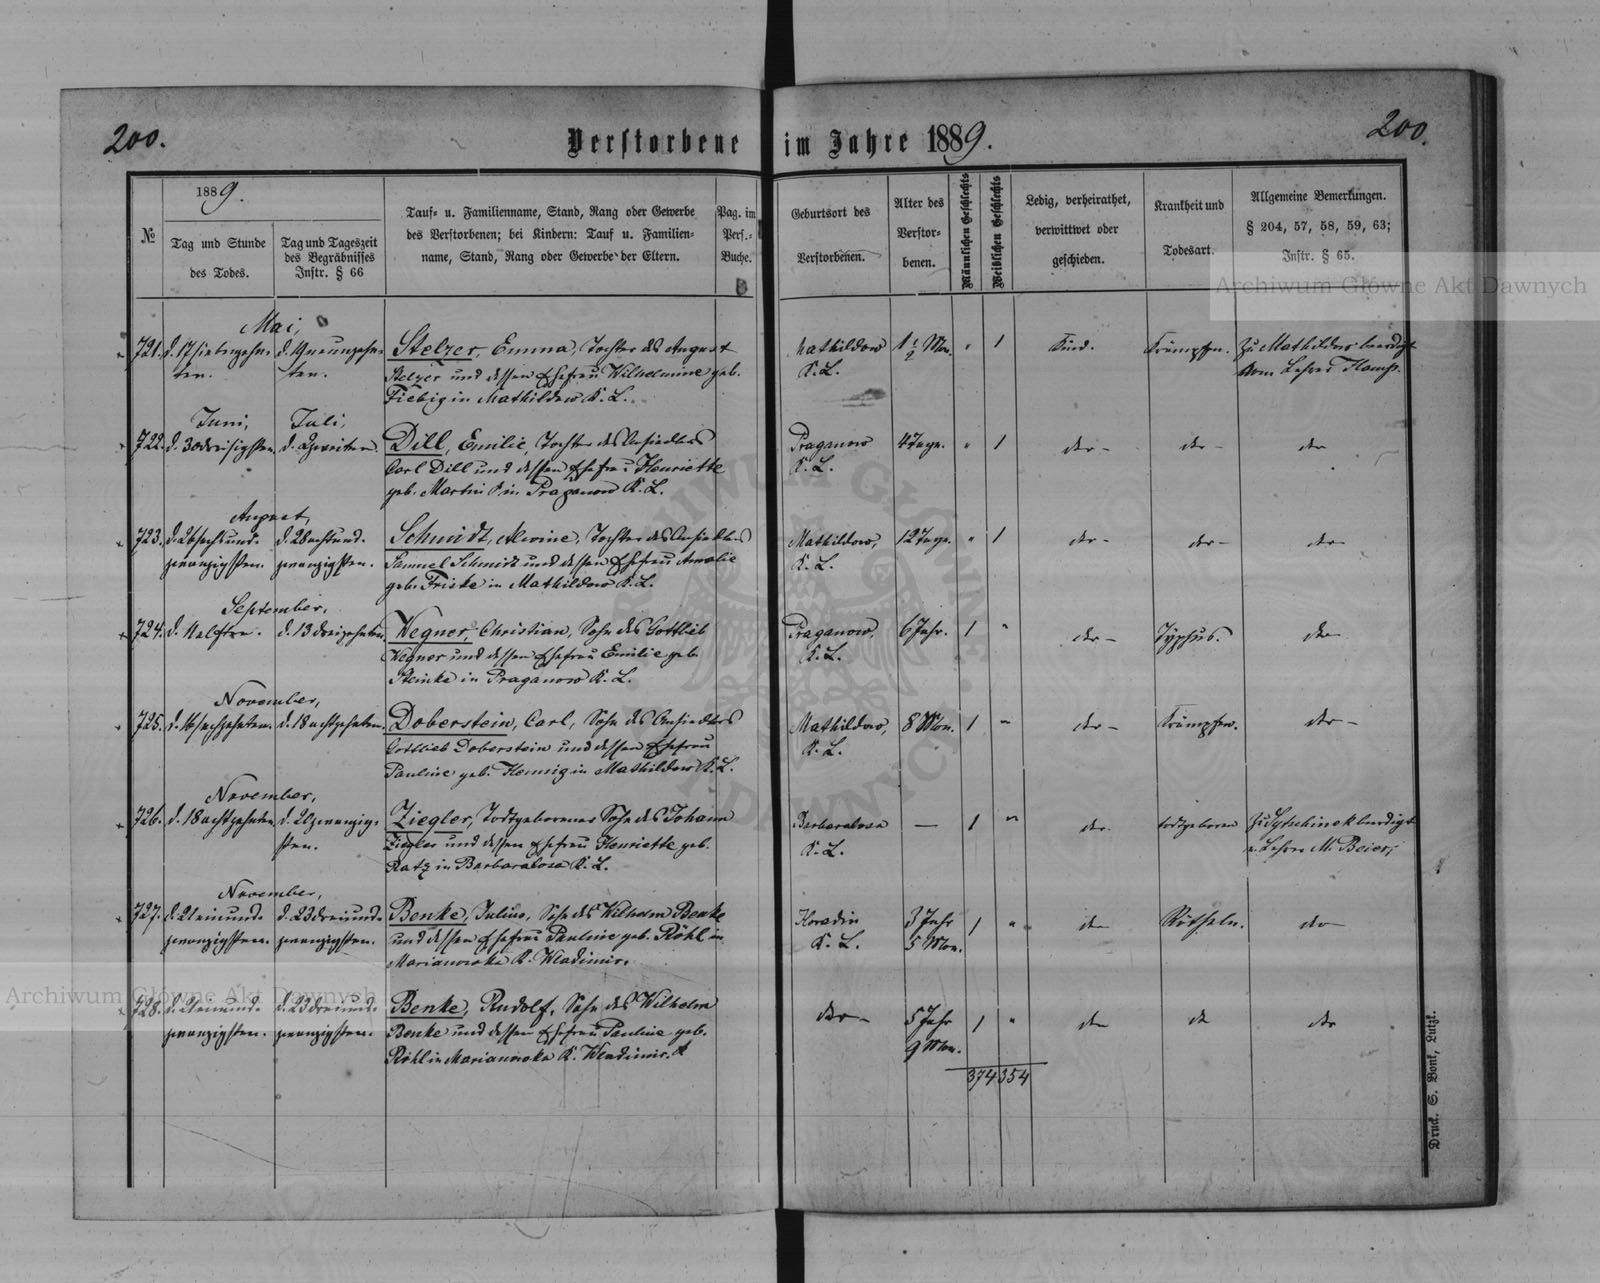 200.
Verstorbene im Jahre 1889.
200.
№
1889.
Tag und Stunde
des Todes.
Tag und Tageszeit
des Begräbnisses
Instr. § 66
Tauf- u. Familienname, Stand, Rang oder Gewerbe
des Verstorbenen; bei Kindern: Tauf u. Familien-
name, Stand, Rang oder Gewerbe der Eltern.
Pag. im
Pers.-
Buche.
Geburtsort des
Verstorbenen.
Alter des
Verstor-
benen.
Männlichen Geschlechts
Weiblichen Geschlechts
Ledig, verheirathet,
verwittwet oder
geschieden.
Krankheit und
Todesart.
Allgemeine Bemerkungen.
§ 204, 57, 58, 59, 63;
Instr. § 65.
Mai,
721. d. 17 siebenzehn- d. 19 neunzehn- Stelzer, Emma, Tochter des August Mathildow 1 1/2 Mon. " 1 Kind. Krämpfen. Zu Mathildow beerdigt
ten. ten. Stelzer und dessen Ehefrau Wilhelmine geb. K. L. vom Lehrer
Fiebig in Mathildow K. L.
Juni, Juli,
722. d. 30 dreisigsten. d. 2 zweiten. Dill, Emilie, Tochter des Ansiedlers Praganow 4 Tage. " 1 do- do- do
Carl Dill und dessen Ehefrau Henriette K. L.
geb. Martin in Praganow K. L.
August,
723. d. 26 sechsund- d. 28 achtund- Schmidt, Alwine, Tochter des Ansiedlers Mathildow, 12 Tage. " 1 do- do- do
zwanzigsten. zwanzigsten. Samuel Schmidt und dessen Ehefrau Amalie K. L.
geb. Friske in Mathildow K. L.
September,
724. d. 11 elften. d. 13 dreizehnten. Wegner, Christian, Sohn des Gottlieb Praganow, 6 Jahr. 1 " do- Typhus. do
Wegner und dessen Ehefrau Emilie geb. K. L.
Steinke in Praganow K. L.
November,
725. d. 16 sechzehnten. d. 18 achtzehnten. Doberstein, Carl, Sohn des Ansiedlers Mathildow, 8 Mon. 1 " do- Krämpfen. do-
Gottlieb Doberstein und dessen Ehefrau K. L.
Pauline geb. Hennig in Mathildow K. L.
November,
726. d. 18 achtzehnten d. 20 zwanzig- Ziegler, Todtgeborener Sohn des Johann Barbaralosa — 1 " do. todtgeboren beerdigt
sten. Ziegler und dessen Ehefrau Henriette geb. K. L. v. Lehrer M. Beier,
Ratz in Barbaralosa K. L.
November,
727. d. 21 einund- d. 23 dreiund- Benke, Julius, Sohn des Wilhelm Benke Koradin 3 Jahr 1 " do Rötheln. do
zwanzigsten. zwanzigsten. und dessen Ehefrau Pauline geb. Röhl in K. L. 5 Mon.
Marianowka K. Wladimir.
728. d. 21 einund- d. 23 dreiund- Benke, Rudolf, Sohn des Wilhelm do- 5 Jahr 1 " do do do
zwanzigsten. zwanzigsten. Benke und dessen Ehefrau Pauline geb. 9 Mon.
Röhl in Marianowka K. Wladimir.
374 354
Druck. S. Bonk, Lutzk.
Archiwum Główne Akt Dawnych
Archiwum Główne Akt Dawnych
ARCHIWUM GŁÓWNE AKT DAWNYCH